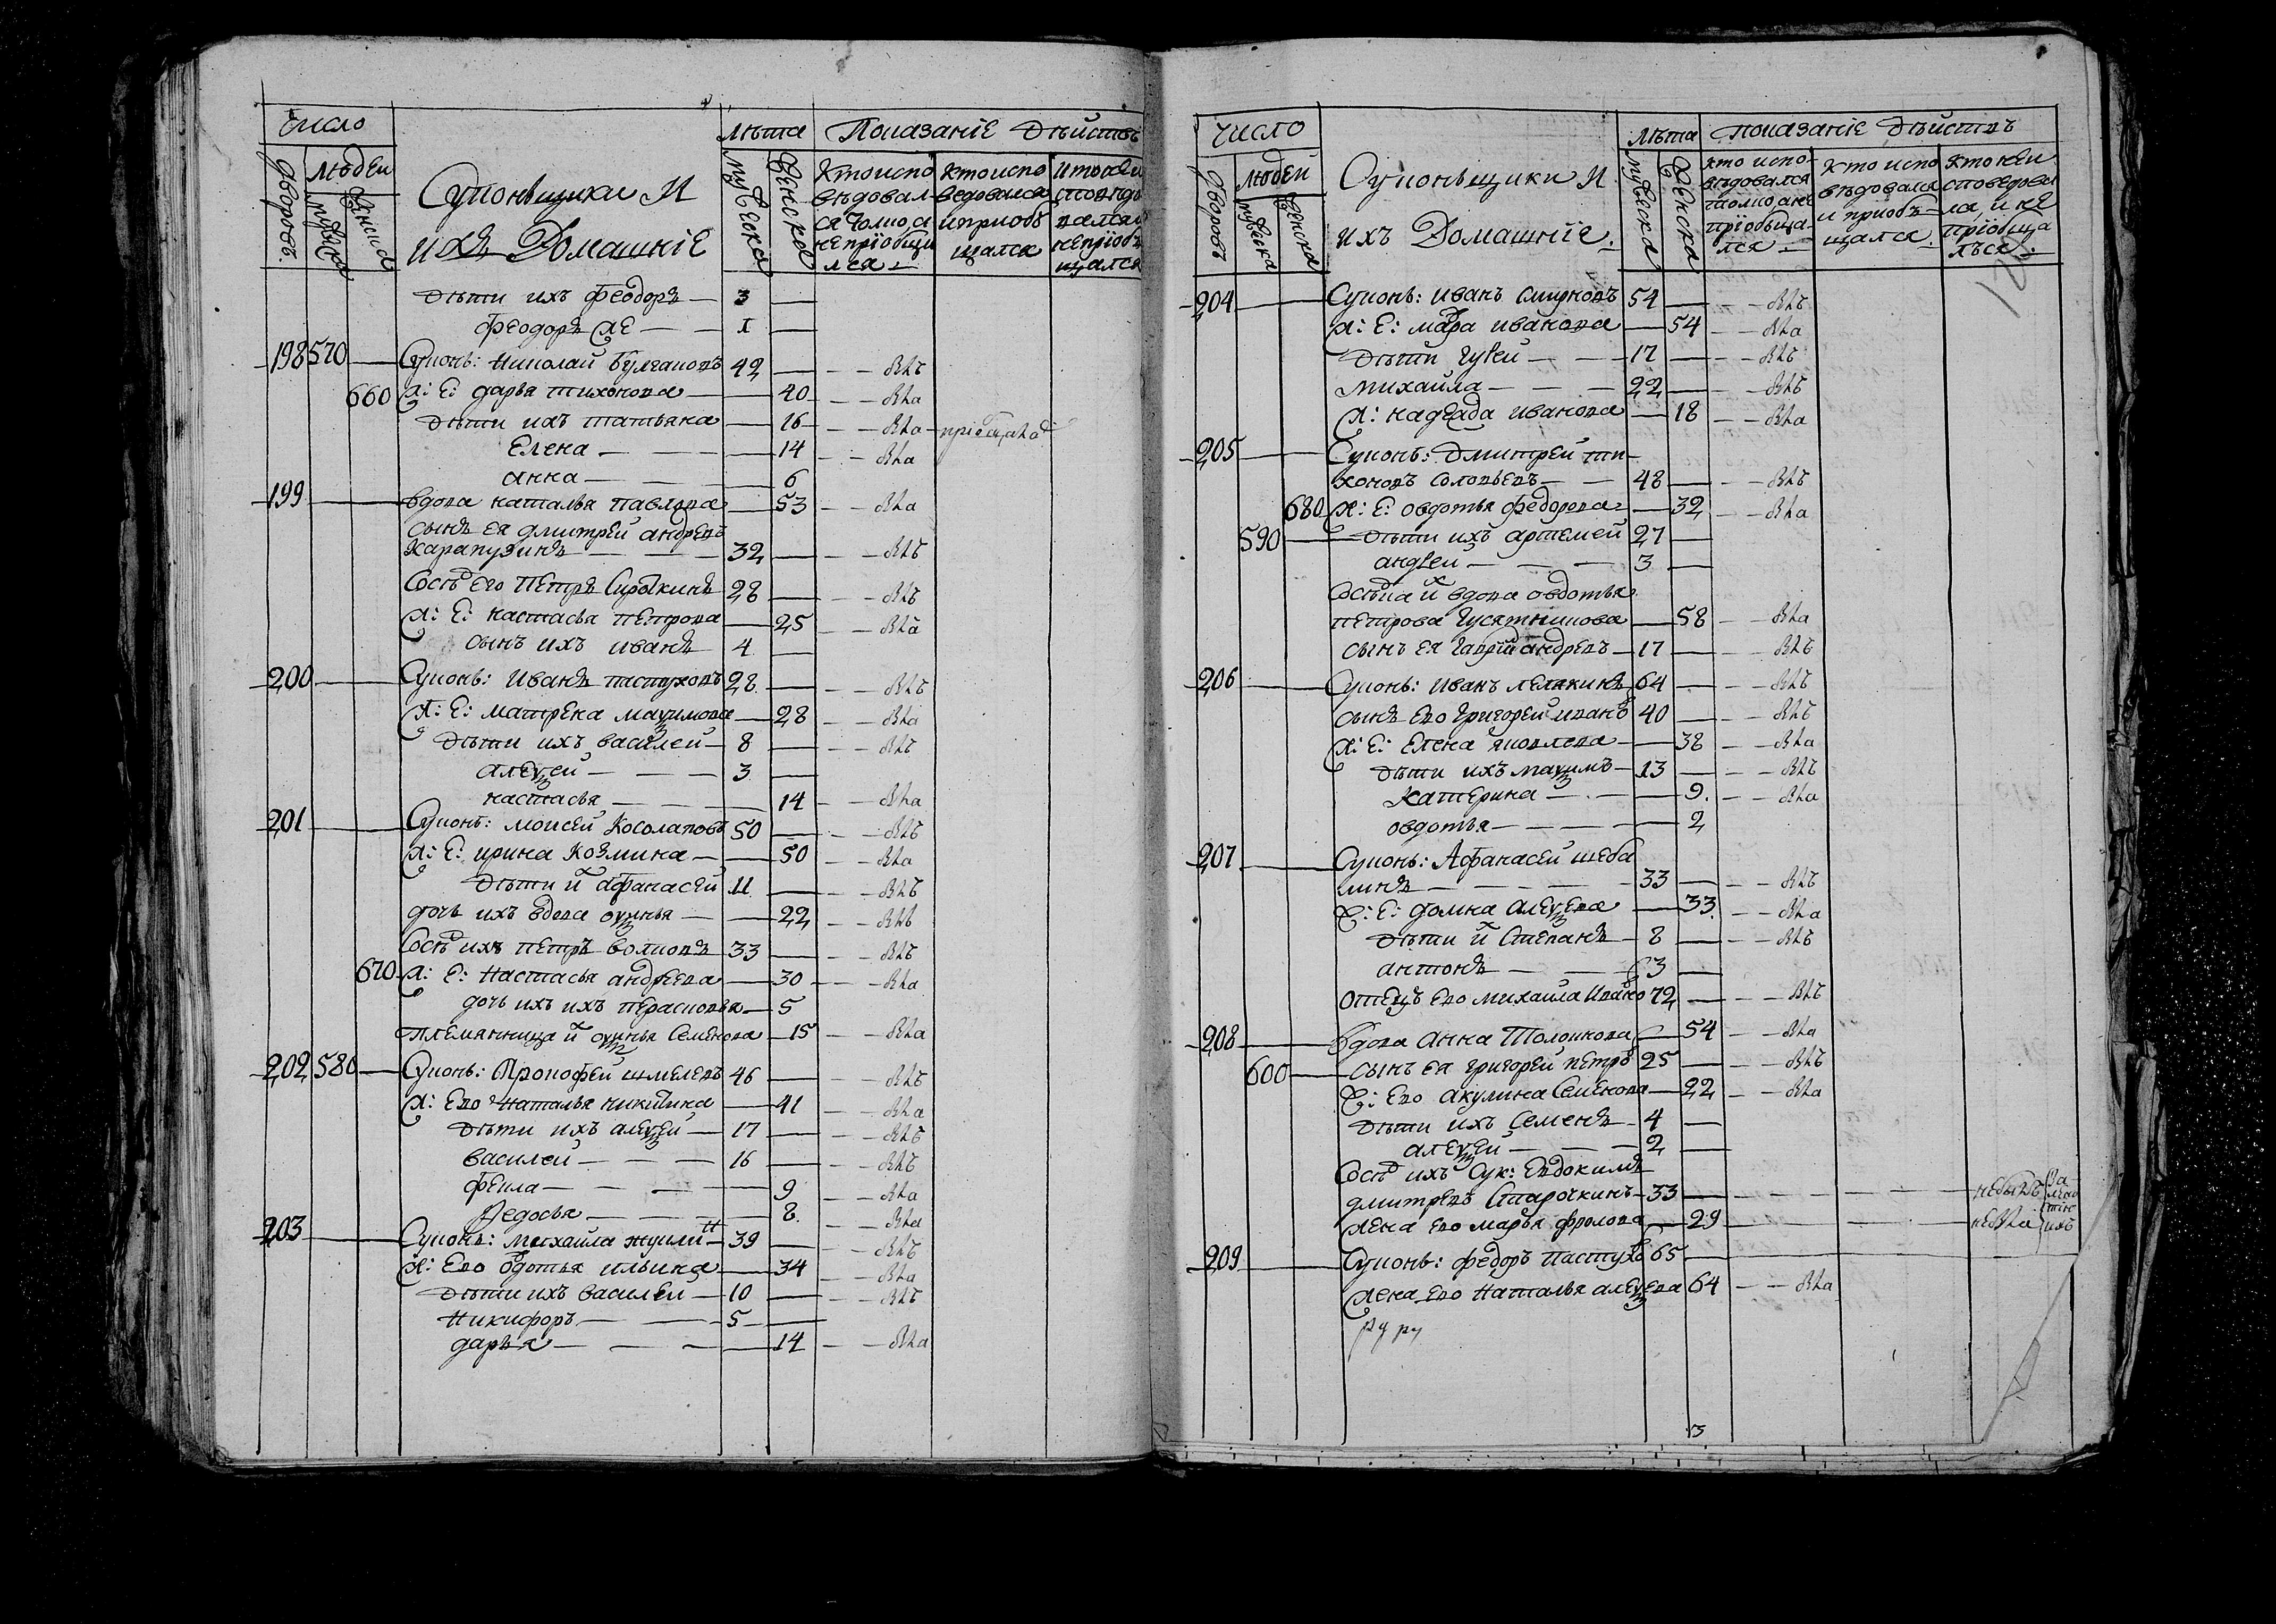 Число
Лѣта Показаніе Дѣйствъ
дворовъ людей
мужеска женска
Суконьщики И
ихъ Домашніе
мужеска женска
кто испо
вѣдовал
ся толко, а
не пріобщи
лся
кто испо
ведовался
и приоб
щался
дѣти ихъ Феодоръ — 3
Феодоръ же — 1
198 570 Суконь: Николай Булгаковъ 42 — былъ
660 ж: Е: дарья тихонова — 40 — была
дѣти ихъ татьяна — 16 — была
Елена — 14 — была
анна — 6
199 вдова наталья павлова — 53 — была
сынъ ея дмитрей андреевъ
Карапузинъ — 32 — былъ
Сосѣд его Петръ Сироткинъ 28 — былъ
ж: Е: настасья петрова — 25 — была
сынъ ихъ иванъ 4
200 Суконь: Иванъ пастуховъ 28 — былъ
ж: Е: матрена маѯимова — 28 — была
дѣти ихъ василей — 8 — былъ
алеѯей — 3
настасья — 14 — была
201 Суконь: моисей Косолаповъ 50 — былъ
ж: Е: ирина Козмина — 50 — была
дѣти их афанасей 11 — былъ
дочь ихъ вдова оѯинья — 22 — былъ
Сосѣд ихъ петръ волковъ 33 — былъ
670 ж: Е: Настасья андреева — 30 — была
дочь ихъ ихъ перасковья — 5
племянница их оѯинья Семенова — 15 — была
202 580 Суконь: Прокофей шмелевъ 46 — былъ
ж: Ево Наталья никитина — 41 — была
дѣти ихъ алеѯей — 17 — былъ
василей — 16 — былъ
фекла — 9 — была
Федосья — 8 — была
203 Суконь: Михаила жукин 39 — былъ
ж: Ево Вдотья ильина — 34 — была
дѣти ихъ василей — 10 — былъ
Никифоръ — 5
дарья — 14 — была
Число
Лѣта Показаніе Дѣйствъ
дворовъ людей
мужеска женска
Суконьщики И
ихъ Домашніе.
мужеска женска
кто испо-
вѣдовался
толко, а не
пріобща-
лся
кто испо
вѣдовался
и приоб-
щался
кто не и
споведова
лся, и не
пріобща
лъся
204 Суконь: иванъ смирновъ 54 — былъ
ж: Е: марѳа иванова — 54 — была
дѣти гурей — 17 — былъ
михаила — 22 — былъ
ж: надежда иванова — 18 — была
205 Суконь: дмитрей ти-
хоновъ Соловьевъ — 48 — былъ
680 ж: Е: овдотья федорова — 32 — была
590 дѣти ихъ артемей 27
андрей — 3
Сосѣдка их вдова овдотья
петрова Гусятникова — 58 — была
сынъ ея гаврил андреевъ — 17 — былъ
206 Суконь: иванъ лелякинъ 64 — былъ
сынъ ево григорей иванов 40 — былъ
ж: Е: Елена яковлева — 38 — была
дѣти ихъ маѯимъ — 13 — былъ
Катерина — 9. — была
овдотья — 2
207 Суконь: Афанасей шеба
линъ — 33 — былъ
ж: Е: домна алеѯеева — 33. — была
дѣти их Степанъ — 8 — былъ
антонъ — 3
отецъ ево михаила ивано 72 — былъ
208 вдова анна Толокнова — 54 — была
600 сынъ ея григорей петров 25 — былъ
ж: Ево акулина Семенова — 22 — была
дѣти ихъ Семенъ — 4
алеѯей — 2
Сосѣд ихъ Сук: Евдокимъ
дмитревъ Старочкинъ — 33 — небылъ
жена ево марья фролова — 29 — небыла
209 Суконь: федоръ пастухо 65
жена ево Наталья алеѯеева 64 — была